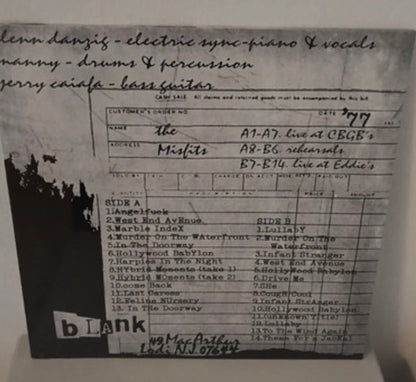 lenn danzig - electric sync-piano & vocals
manny - drums & percussion
jerry caiafa - bass guitar
CASH SALE All claims and returned goods must be accompanied by this bill
CUSTOMER'S ORDER NO. DATE '77
NAME the A1-A7. live at CBGB's
ADDRESS Misfits A8-B6. rehearsals
B7-B14. live at Eddie's
SOLD BY C.O.D. CHARGE ON ACCT
PRICE AMOUNT
SIDE A
1.Angelfuck
2.West End AvEnue
3.Marble IndeX
4.Murder On The Waterfront
5.In The Doorway
6.Hollywood Babylon
7.Harpies In The Night
8.Hybrid Moments (take 1)
9.Hybrid MOments (take 2)
10.come Back
11.Last Caress
12.Feline NUrsery
13. In The Doorway
SIDE B
1.LullabY
2.Murder On The
Waterfront
3.Infant Stranger
4.West End Avenue
5.HollyWood Babylon
6.Drive Me
7.SHe
8.Cough Cool
9.Infant StrAnger
10.Hollywood Babylon
11.(unknown Title)
12.Lullaby
13.To The Wind Again
14.Theme For a JacKal
bLAnk
49 MacArthur
Lodi N.J. 07644